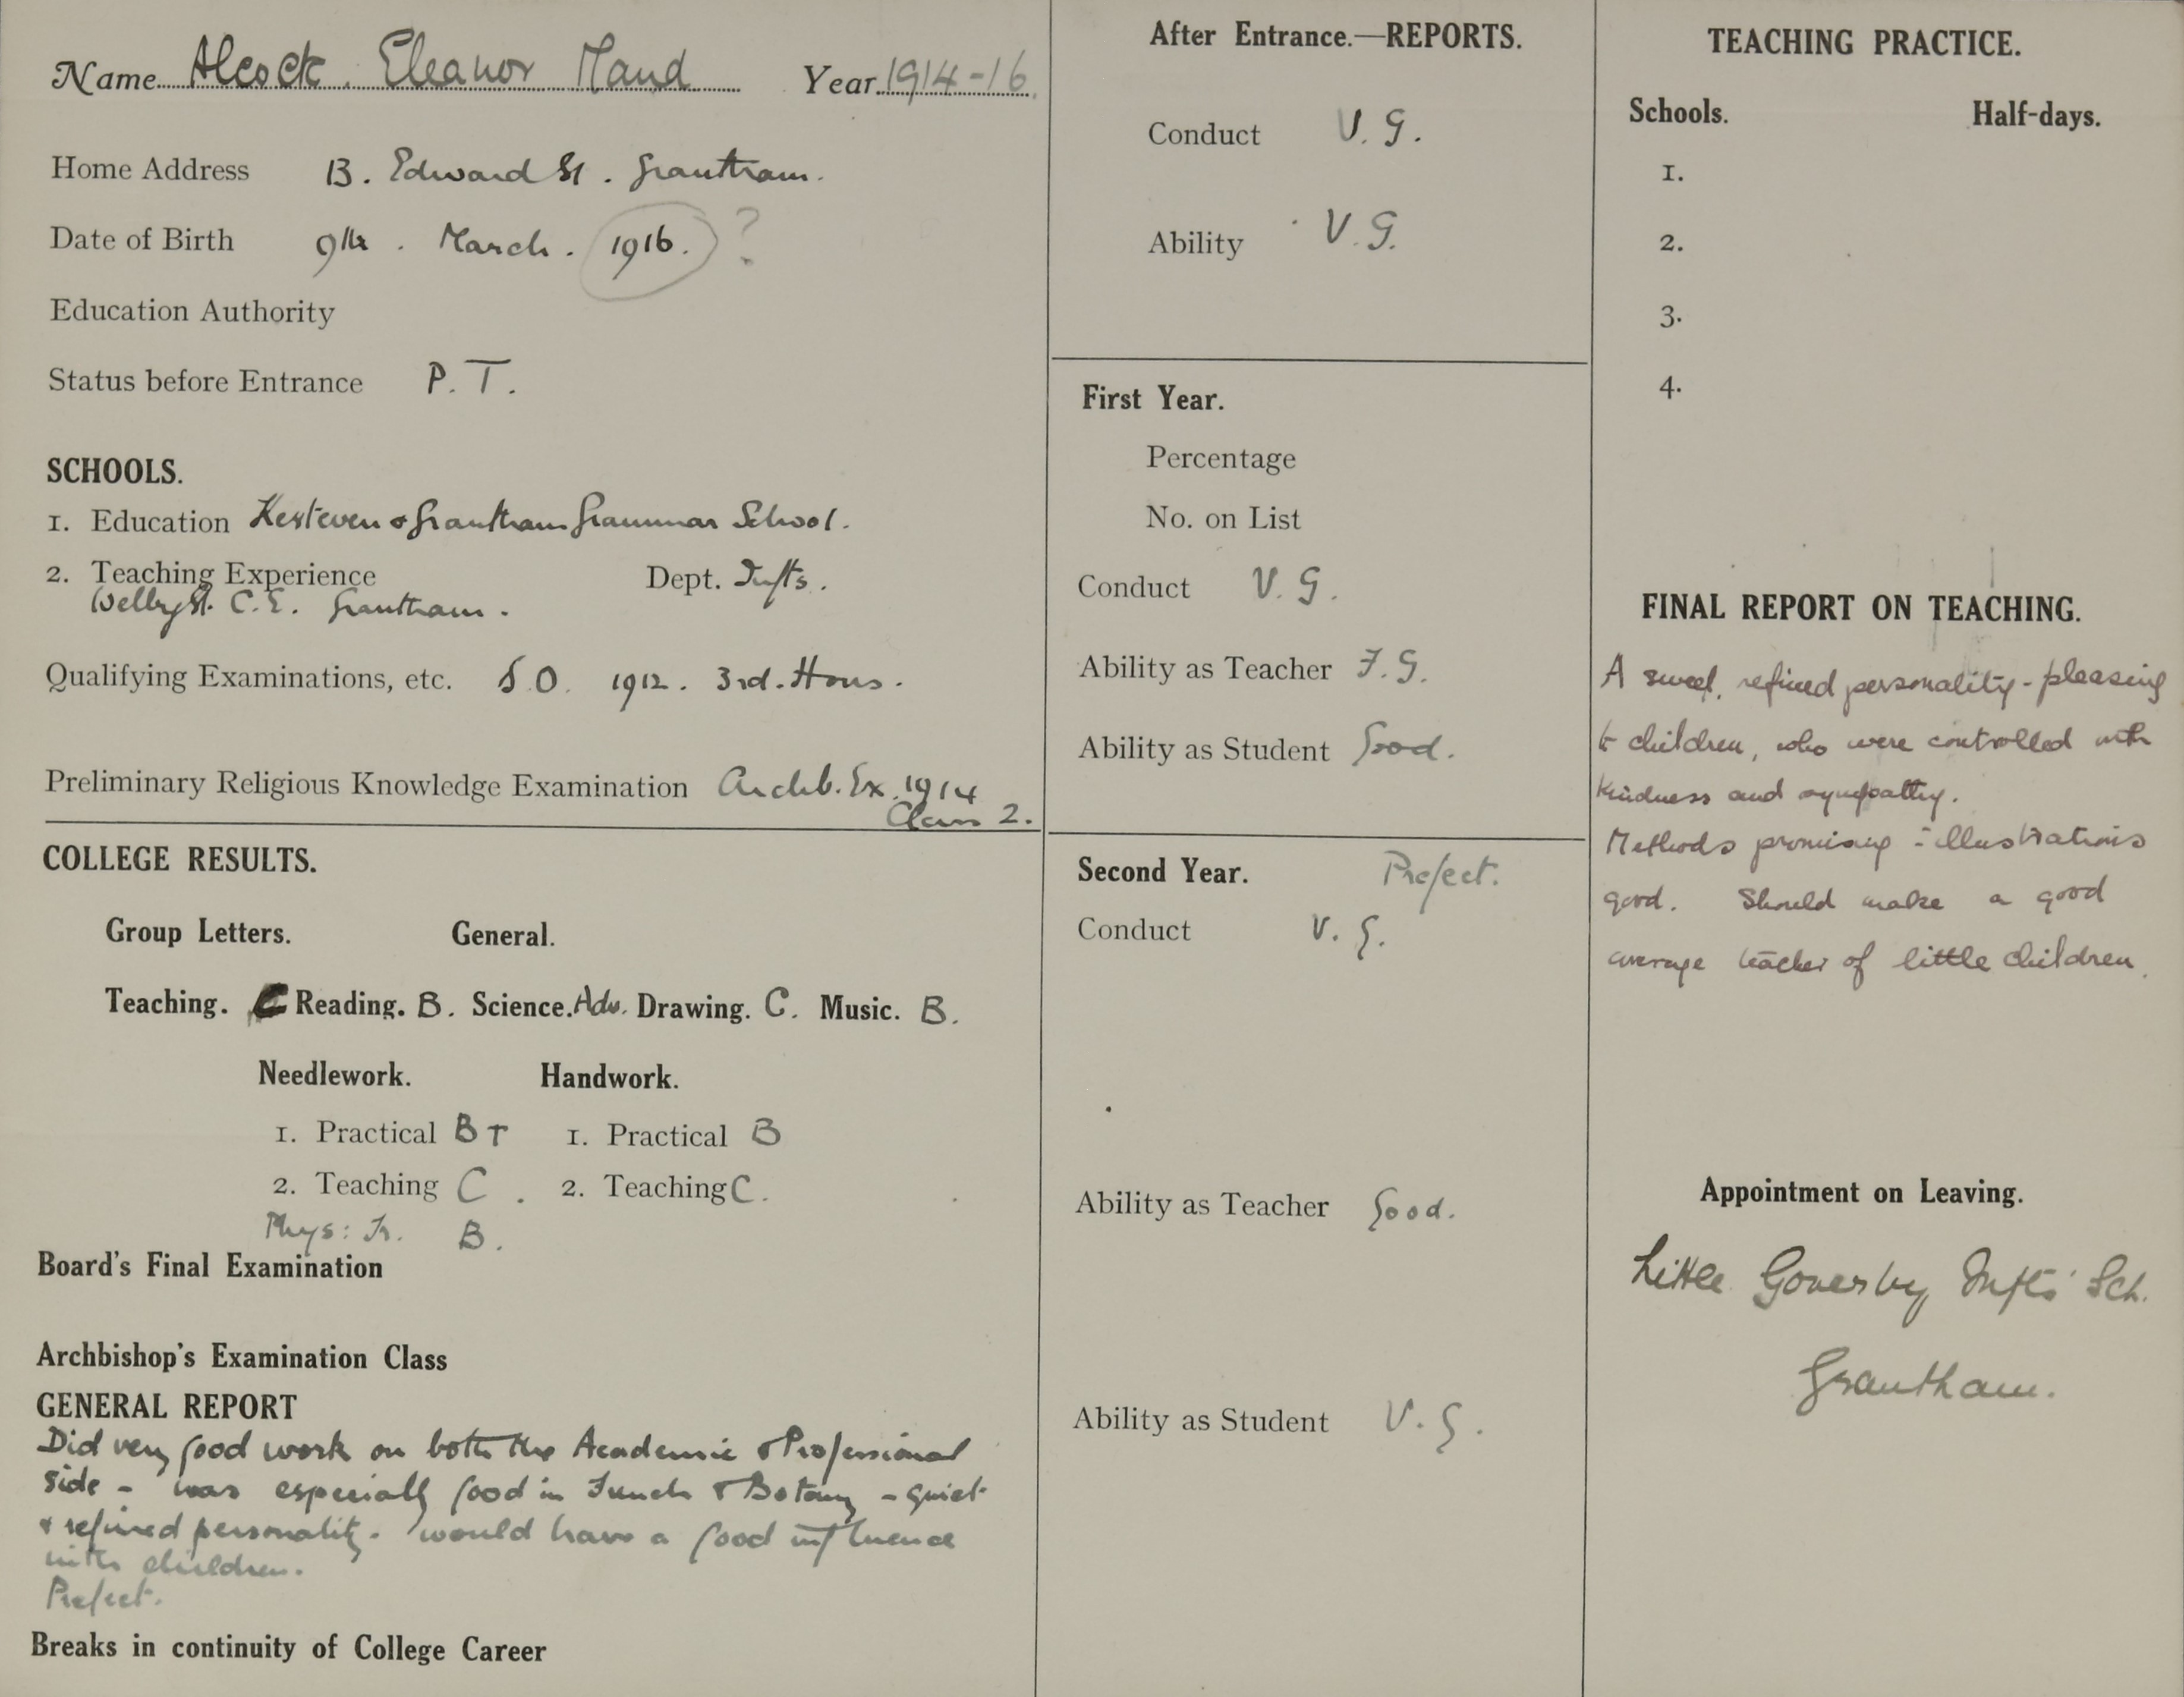 Name Alcock. Eleanor Maud Year 1914-16.
Home Address 13. Edward St. Grantham.
Date of Birth 9th. March. 1916. ?
Education Authority
Status before Entrance P.T.
SCHOOLS.
1. Education Kesteven & Grantham Grammar School.
2. Teaching Experience Dept. Infts.
Welby St. C.E. Grantham.
Qualifying Examinations, etc. S.O. 1912. 3rd. Hons.
Preliminary Religious Knowledge Examination Archb. Ex. 1914
Class 2.
COLLEGE RESULTS.
Group Letters. General.
Teaching. C Reading. B. Science. Adv. Drawing. C. Music. B.
Needlework. Handwork.
1. Practical B+ 1. Practical B
2. Teaching C. 2. Teaching C.
Phys: Tr. B.
Board's Final Examination
Archbishop's Examination Class
GENERAL REPORT
Did very good work on both the Academic & Professional
side - was especially good in French & Botany - quiet
& refined personality. Would have a good influence
with children.
Prefect.
Breaks in continuity of College Career
After Entrance.—REPORTS.
Conduct V.G.
Ability V.G.
First Year.
Percentage
No. on List
Conduct V.G.
Ability as Teacher F.G.
Ability as Student Good.
Second Year. Prefect.
Conduct V.G.
Ability as Teacher Good.
Ability as Student V.G.
TEACHING PRACTICE.
Schools. Half-days.
1.
2.
3.
4.
FINAL REPORT ON TEACHING.
A sweet, refined personality - pleasing
to children, who were controlled with
kindness and sympathy.
Methods promising - illustrations
good. Should make a good
average teacher of little children.
Appointment on Leaving.
Little Gonerby Infts' Sch.
Grantham.